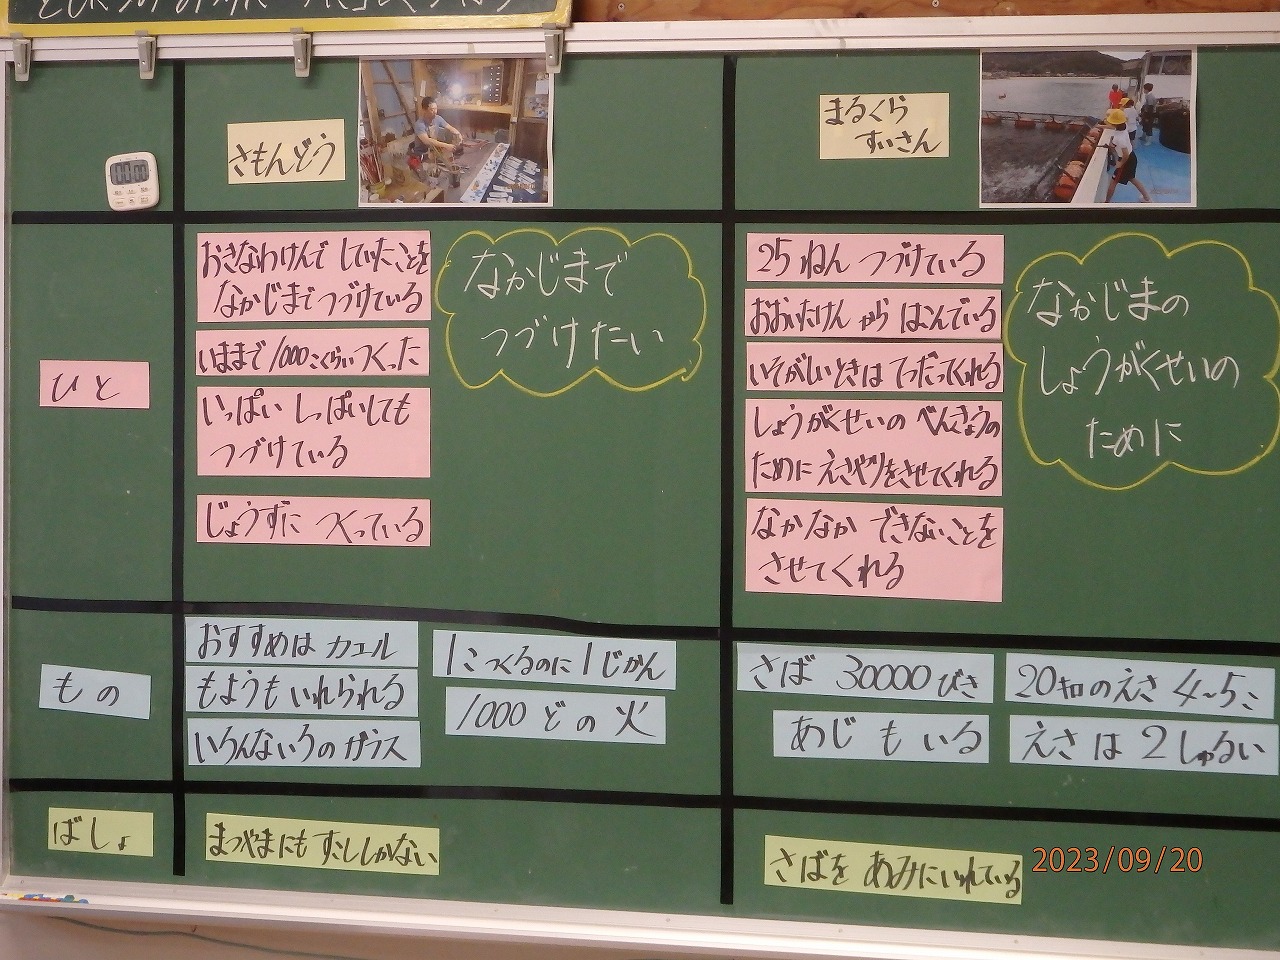 さもんどう
まるくら
すいさん
ひと
おきなわけんで していたことを
なかじまでつづけている
いままで1000こくらいつくった
いっぱい しっぱいしても
つづけている
じょうずに つくっている
なかじまで
つづけたい
25ねん つづけている
おおいたけん から はこんでいる
いそがしいときは てつだってくれる
しょうがくせいの べんきょうの
ために えさやりをさせてくれる
なかなか できないことを
させてくれる
なかじまの
しょうがくせいの
ために
もの
おすすめは カエル
もようも いれられる
いろんないろの ガラス
1こ つくるのに 1じかん
1000どの火
さば 30000びき
あじ も いる
20キロのえさ 4~5こ
えさは 2しゅるい
ばしょ
まつやまにも すこししかない
さばを あみにいれている
2023/09/20